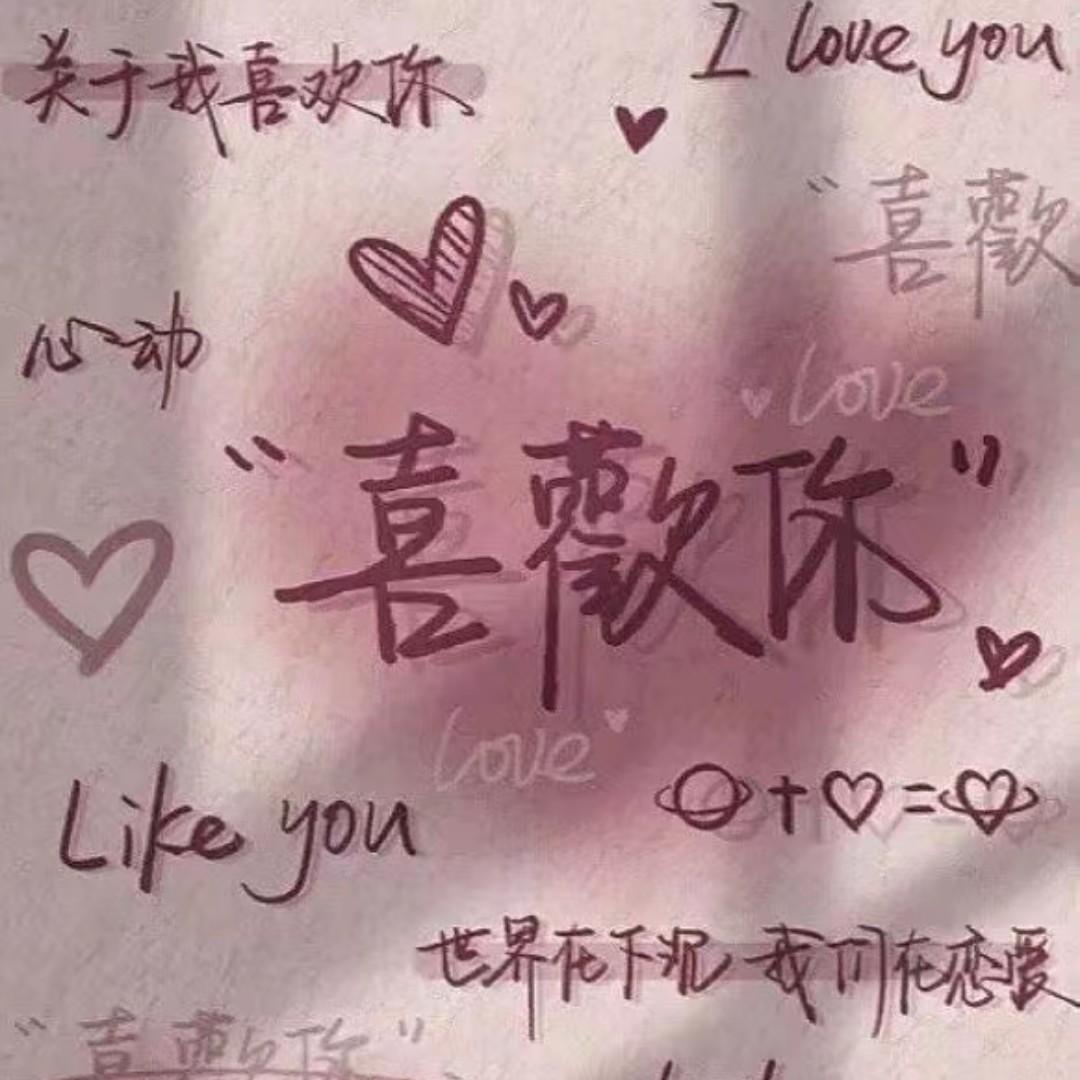 关于我喜欢你
I love you
“喜歡
心动
love
“喜歡你”
love
Like you
+ =
世界在下沉 我们在恋爱
“喜歡你”